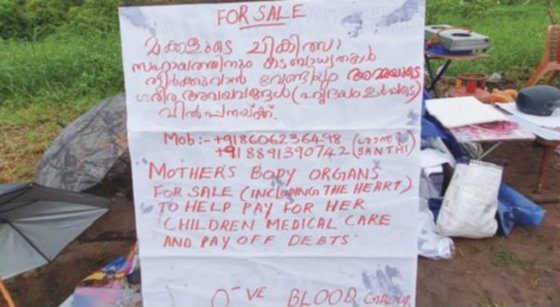 FOR SALE
മക്കളുടെ ചികിത്സാ
സഹായത്തിനും കടബാധ്യതകൾ
തീർക്കുവാൻ വേണ്ടിയും അമ്മയുടെ
ശരീര അവയവങ്ങൾ (ഹൃദയം ഉൾപ്പെടെ)
വിൽപനയ്ക്ക്.
Mob:- +918606236498 (ശാന്തി)
+918891390742 (SANTHI)
MOTHER'S BODY ORGANS
FOR SALE (INCLUDING THE HEART)
TO HELP PAY FOR HER
CHILDREN MEDICAL CARE
AND PAY OFF DEBTS
O-VE BLOOD GROUP